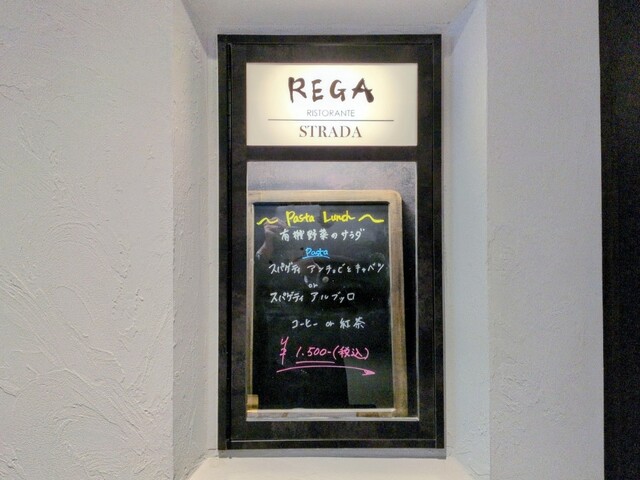 REGA
RISTORANTE
STRADA
~ Pasta Lunch ~
有機野菜のサラダ
Pasta
スパゲティ アンチョビとキャベツ
or
スパゲティ アルブッロ
コーヒー or 紅茶
¥1.500-(税込)